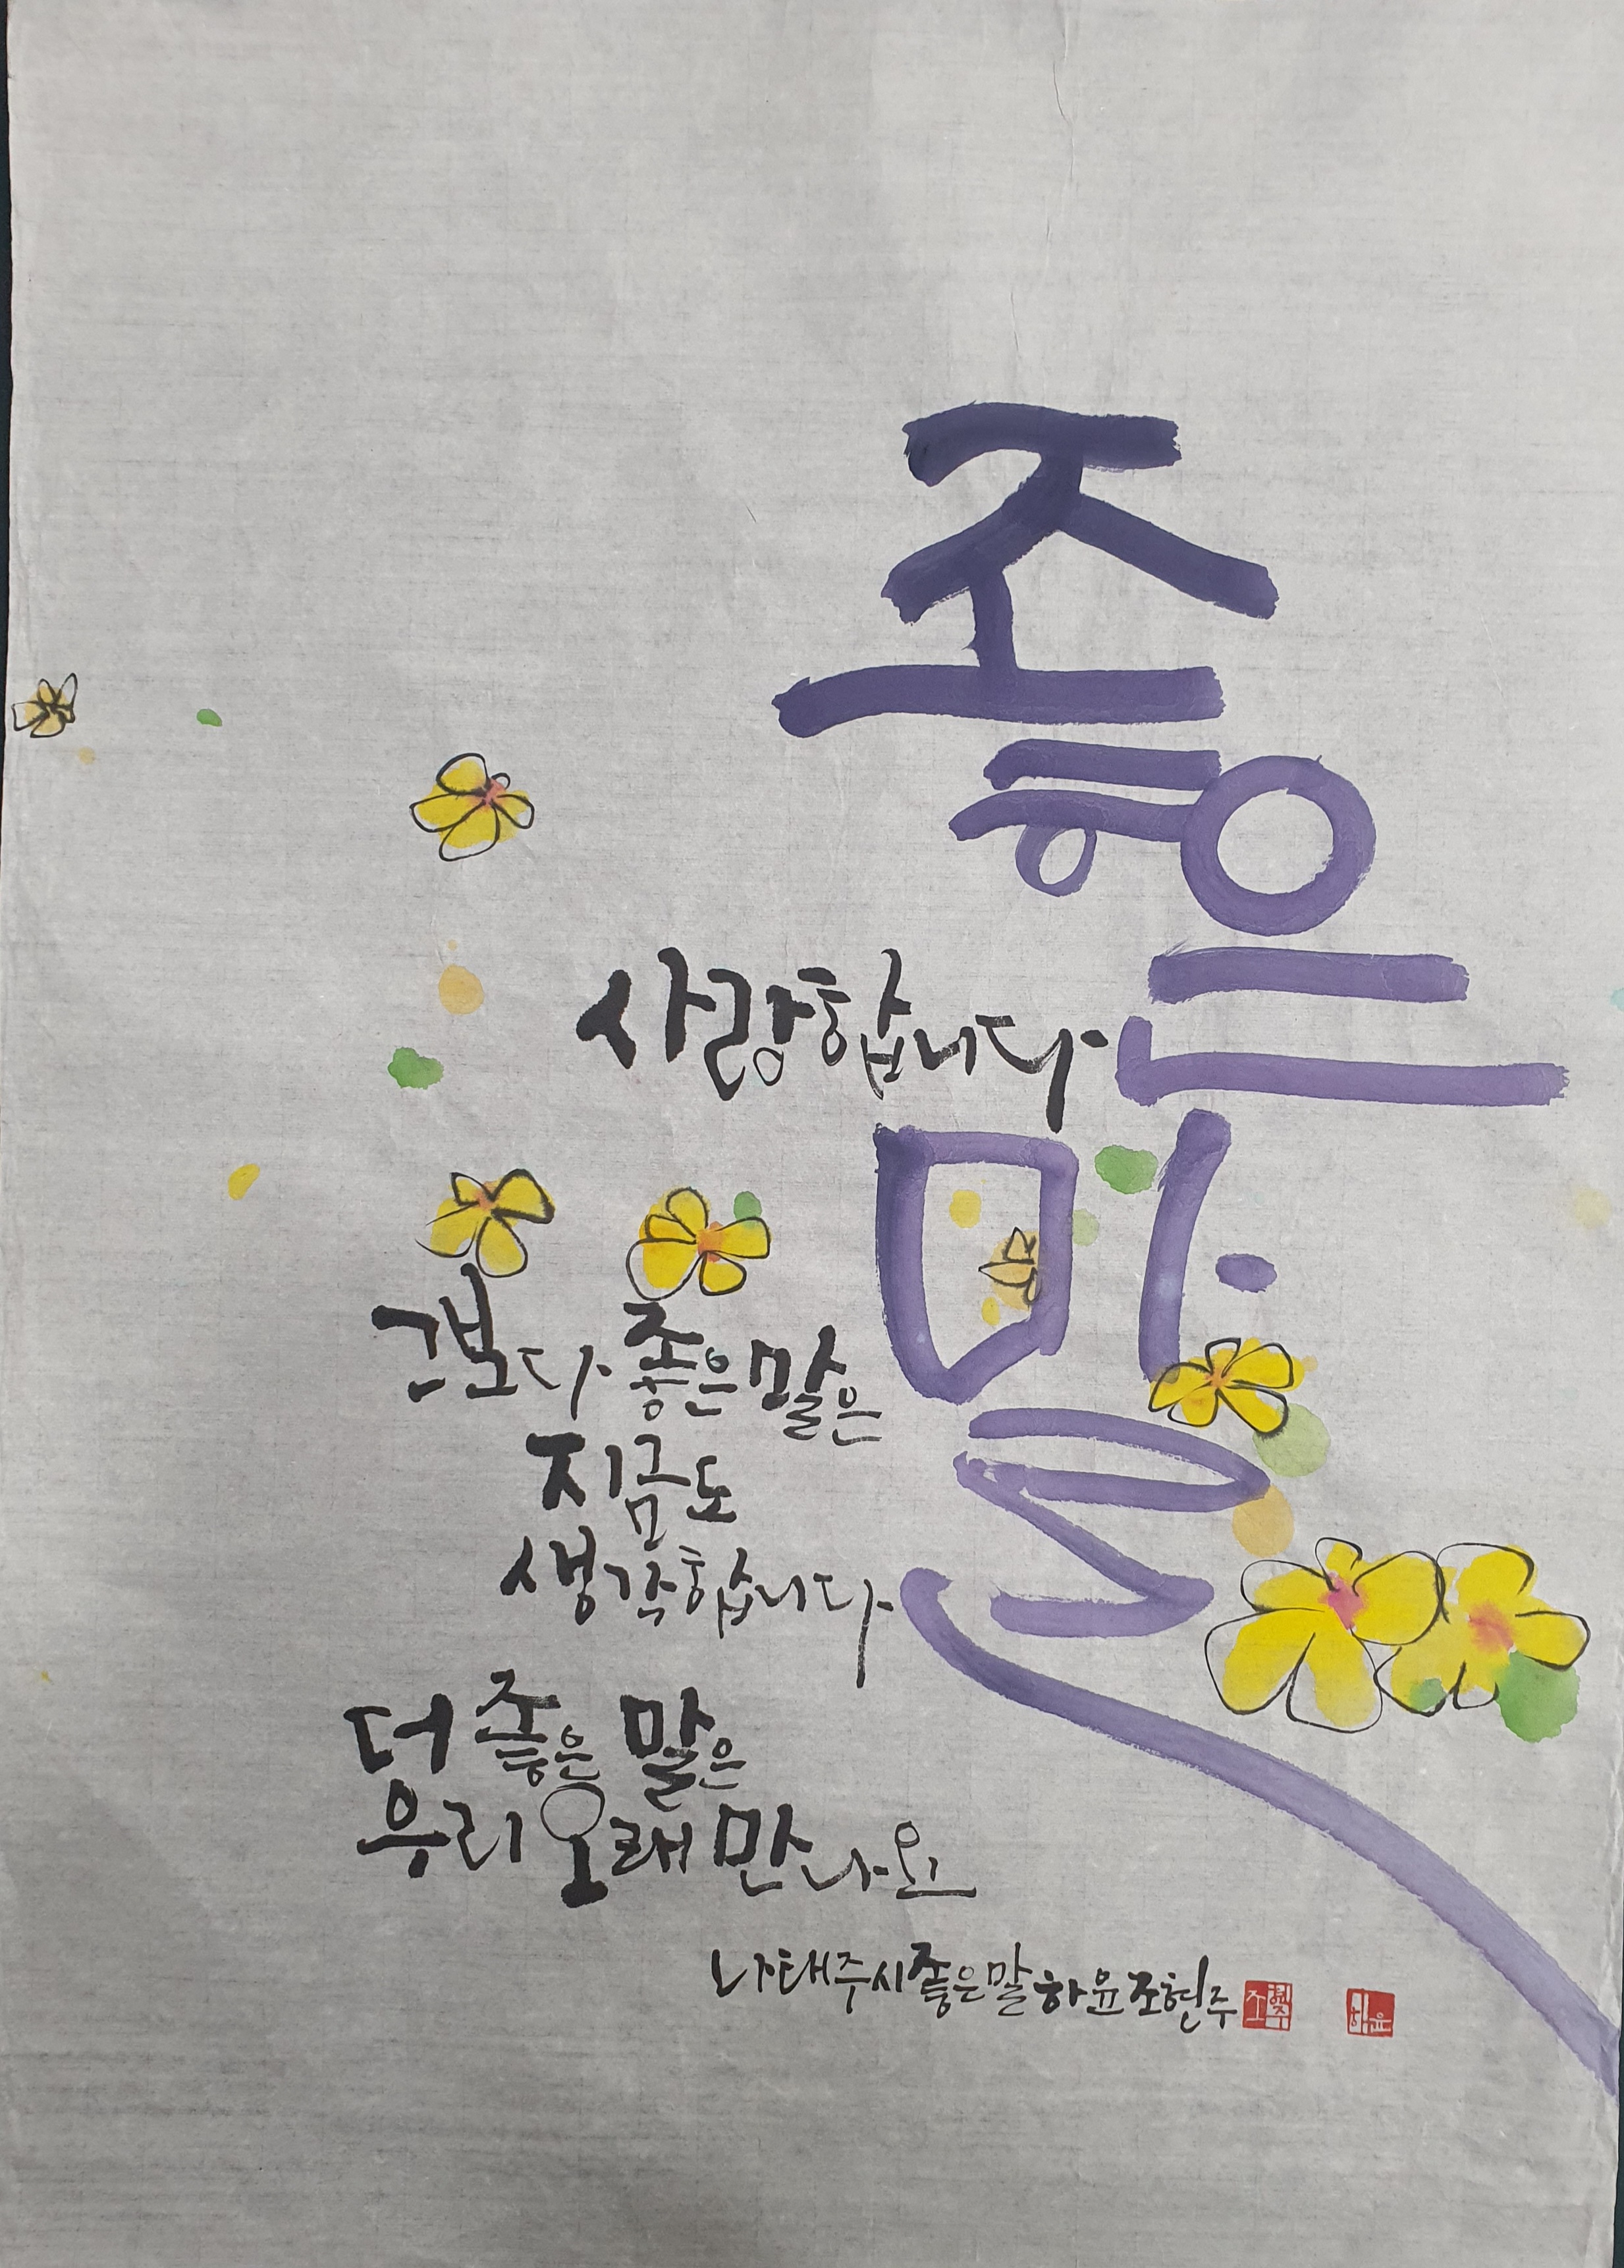 좋은
말
사랑합니다
그보다 좋은 말은
지금도
생각합니다
더 좋은 말은
우리 오래 만나요
나태주시 좋은말 하윤 조현주
조현주
하윤